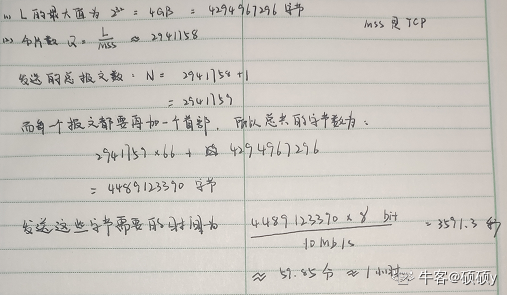 (1) L的最大值为 2³² = 4GB = 4294967296 字节
MSS 是 TCP
(2) 分片数 Q = L/MSS ≈ 2941758
发送的总报文数: N = 2941758+1
= 2941759
而每一个报文都要再加一个首部, 所以总共的字节数为:
2941759×66 + 4294967296
= 4489123390 字节
发送这些字节需要的时间为 4489123390 × 8 bit / 10 Mb/s = 3591.3 秒
≈ 59.85分 ≈ 1小时
牛客@硕硕y